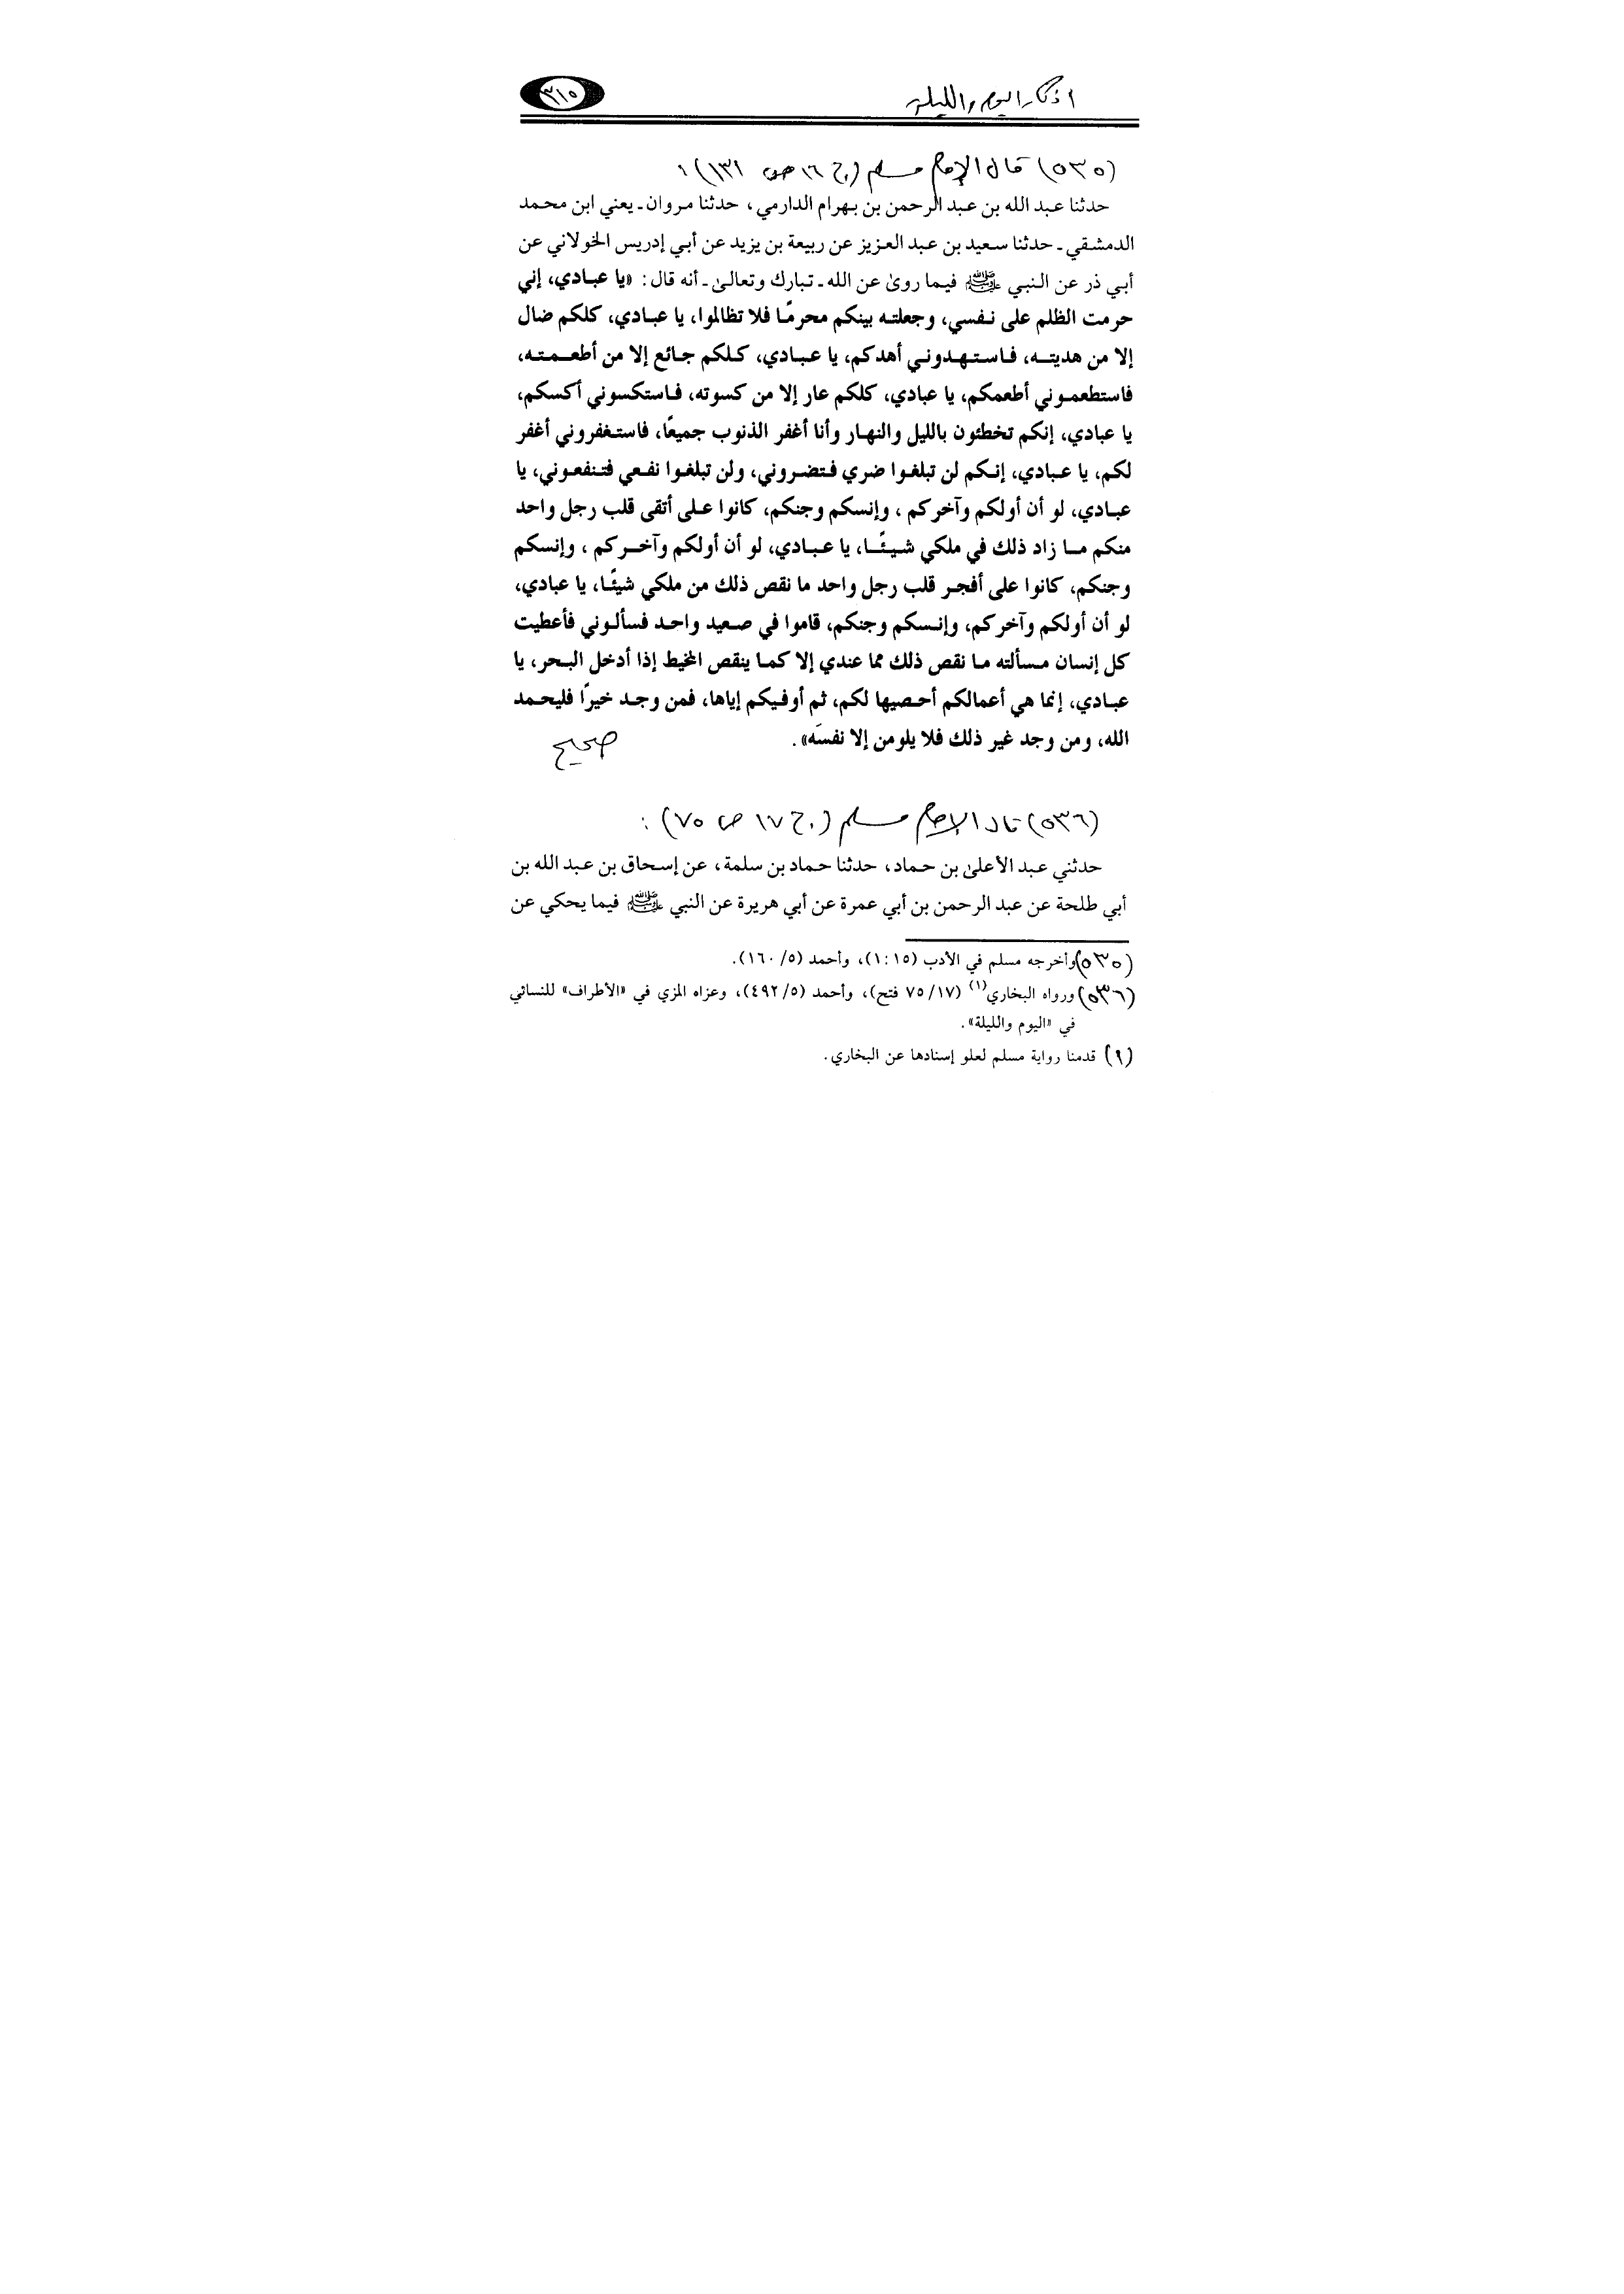 أذكار اليوم والليلة
٣١٥
(٥٣٥) قال الإمام مسلم (ج ١٦ ص ١٣١):
حدثنا عبد الله بن عبد الرحمن بن بهرام الدارمي، حدثنا مروان ـ يعني ابن محمد
الدمشقي ـ حدثنا سعيد بن عبد العزيز عن ربيعة بن يزيد عن أبي إدريس الخولاني عن
أبي ذر عن النبي ﷺ فيما روىٰ عن الله ـ تبارك وتعالىٰ ـ أنه قال: «يا عبادي، إني
حرمت الظلم على نفسي، وجعلته بينكم محرمًا فلا تظالموا، يا عبادي، كلكم ضال
إلا من هديته، فاستهدوني أهدكم، يا عبادي، كلكم جائع إلا من أطعمته،
فاستطعموني أطعمكم، يا عبادي، كلكم عار إلا من كسوته، فاستكسوني أكسكم،
يا عبادي، إنكم تخطئون بالليل والنهار وأنا أغفر الذنوب جميعًا، فاستغفروني أغفر
لكم، يا عبادي، إنكم لن تبلغوا ضري فتضروني، ولن تبلغوا نفعي فتنفعوني، يا
عبادي، لو أن أولكم وآخركم ، وإنسكم وجنكم، كانوا على أتقى قلب رجل واحد
منكم ما زاد ذلك في ملكي شيئًا، يا عبادي، لو أن أولكم وآخركم ، وإنسكم
وجنكم، كانوا على أفجر قلب رجل واحد ما نقص ذلك من ملكي شيئًا، يا عبادي،
لو أن أولكم وآخركم، وإنسكم وجنكم، قاموا في صعيد واحد فسألوني فأعطيت
كل إنسان مسألته ما نقص ذلك مما عندي إلا كما ينقص المخيط إذا أدخل البحر، يا
عبادي، إنما هي أعمالكم أحصيها لكم، ثم أوفيكم إياها، فمن وجد خيرًا فليحمد
الله، ومن وجد غير ذلك فلا يلومن إلا نفسَه». صحيح
(٥٣٦) قال الإمام مسلم (ج ١٧ ص ٧٠):
حدثني عبد الأعلىٰ بن حماد، حدثنا حماد بن سلمة، عن إسحاق بن عبد الله بن
أبي طلحة عن عبد الرحمن بن أبي عمرة عن أبي هريرة عن النبي ﷺ فيما يحكي عن
(٥٣٥) وأخرجه مسلم في الأدب (١٥: ١)، وأحمد (٥/ ١٦٠).
(٥٣٦) ورواه البخاري(١) (١٧/ ٧٥ فتح)، وأحمد (٥/ ٤٩٢)، وعزاه المزي في «الأطراف» للنسائي
في «اليوم والليلة».
(١) قدمنا رواية مسلم لعلو إسنادها عن البخاري.